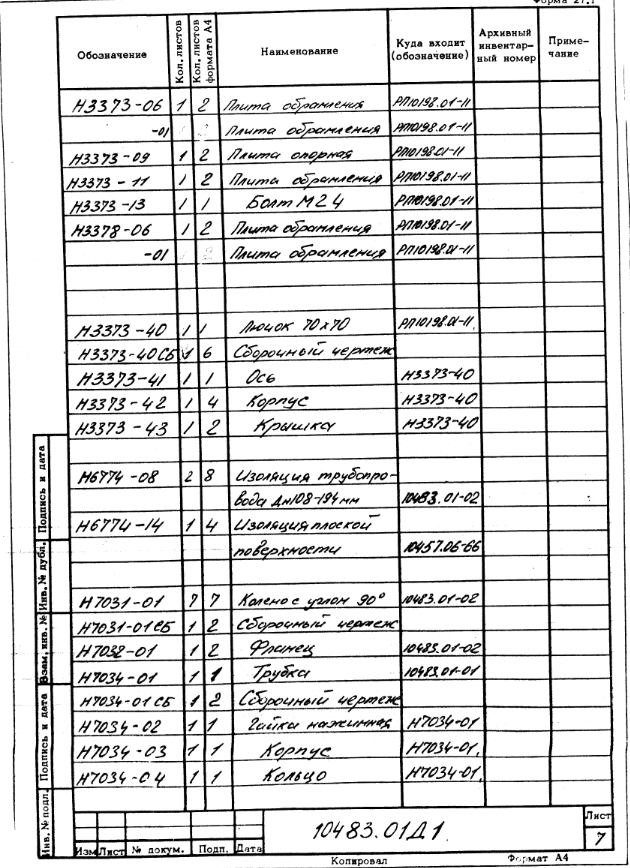 Форма 27.1
Обозначение Кол. листов Кол. листов формата А4 Наименование Куда входит (обозначение) Архивный инвентарный номер Примечание
Н3373-06 1 2 Плита обрамления РП10198.01-11
-01 Плита обрамления РП10198.01-11
Н3373-09 1 2 Плита опорная РП10198.01-11
Н3373-11 1 2 Плита обрамления РП10198.01-11
Н3373-13 1 1 Болт М24 РП10198.01-11
Н3378-06 1 2 Плита обрамления РП10198.01-11
-01 Плита обрамления РП10198.01-11
Н3373-40 1 1 Лючок 70х70 РП10198.01-11
Н3373-40СБ 1 6 Сборочный чертеж
Н3373-41 1 1 Ось Н3373-40
Н3373-42 1 4 Корпус Н3373-40
Н3373-43 1 2 Крышка Н3373-40
Н6774-08 2 8 Изоляция трубопро-
вода Дн108-194мм 10483.01-02
Н6774-14 1 4 Изоляция плоской
поверхности 10457.06-66
Н7031-01 7 7 Колено с углом 90° 10483.01-02
Н7031-01СБ 1 2 Сборочный чертеж
Н7032-01 1 2 Фланец 10483.01-02
Н7034-01 1 1 Трубка 10483.01-01
Н7034-01СБ 1 2 Сборочный чертеж
Н7034-02 1 1 Гайка нажимная Н7034-01
Н7034-03 1 1 Корпус Н7034-01,
Н7034-04 1 1 Кольцо Н7034-01,
Инв. № подл. Подпись и дата Взам, инв. № Инв. № дубл. Подпись и дата
10483.01Д1
Лист
7
Изм Лист № докум. Подп. Дата
Копировал Формат А4